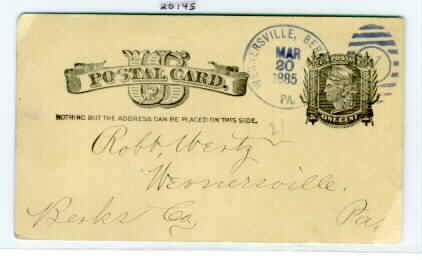 20145
U S
POSTAL CARD.
WERNERSVILLE, BERKS
MAR
20
1885
PA.
POSTAGE
ONE CENT
NOTHING BUT THE ADDRESS CAN BE PLACED ON THIS SIDE.
21
Robt Wertz
Wernersville.
Berks Co Pa.